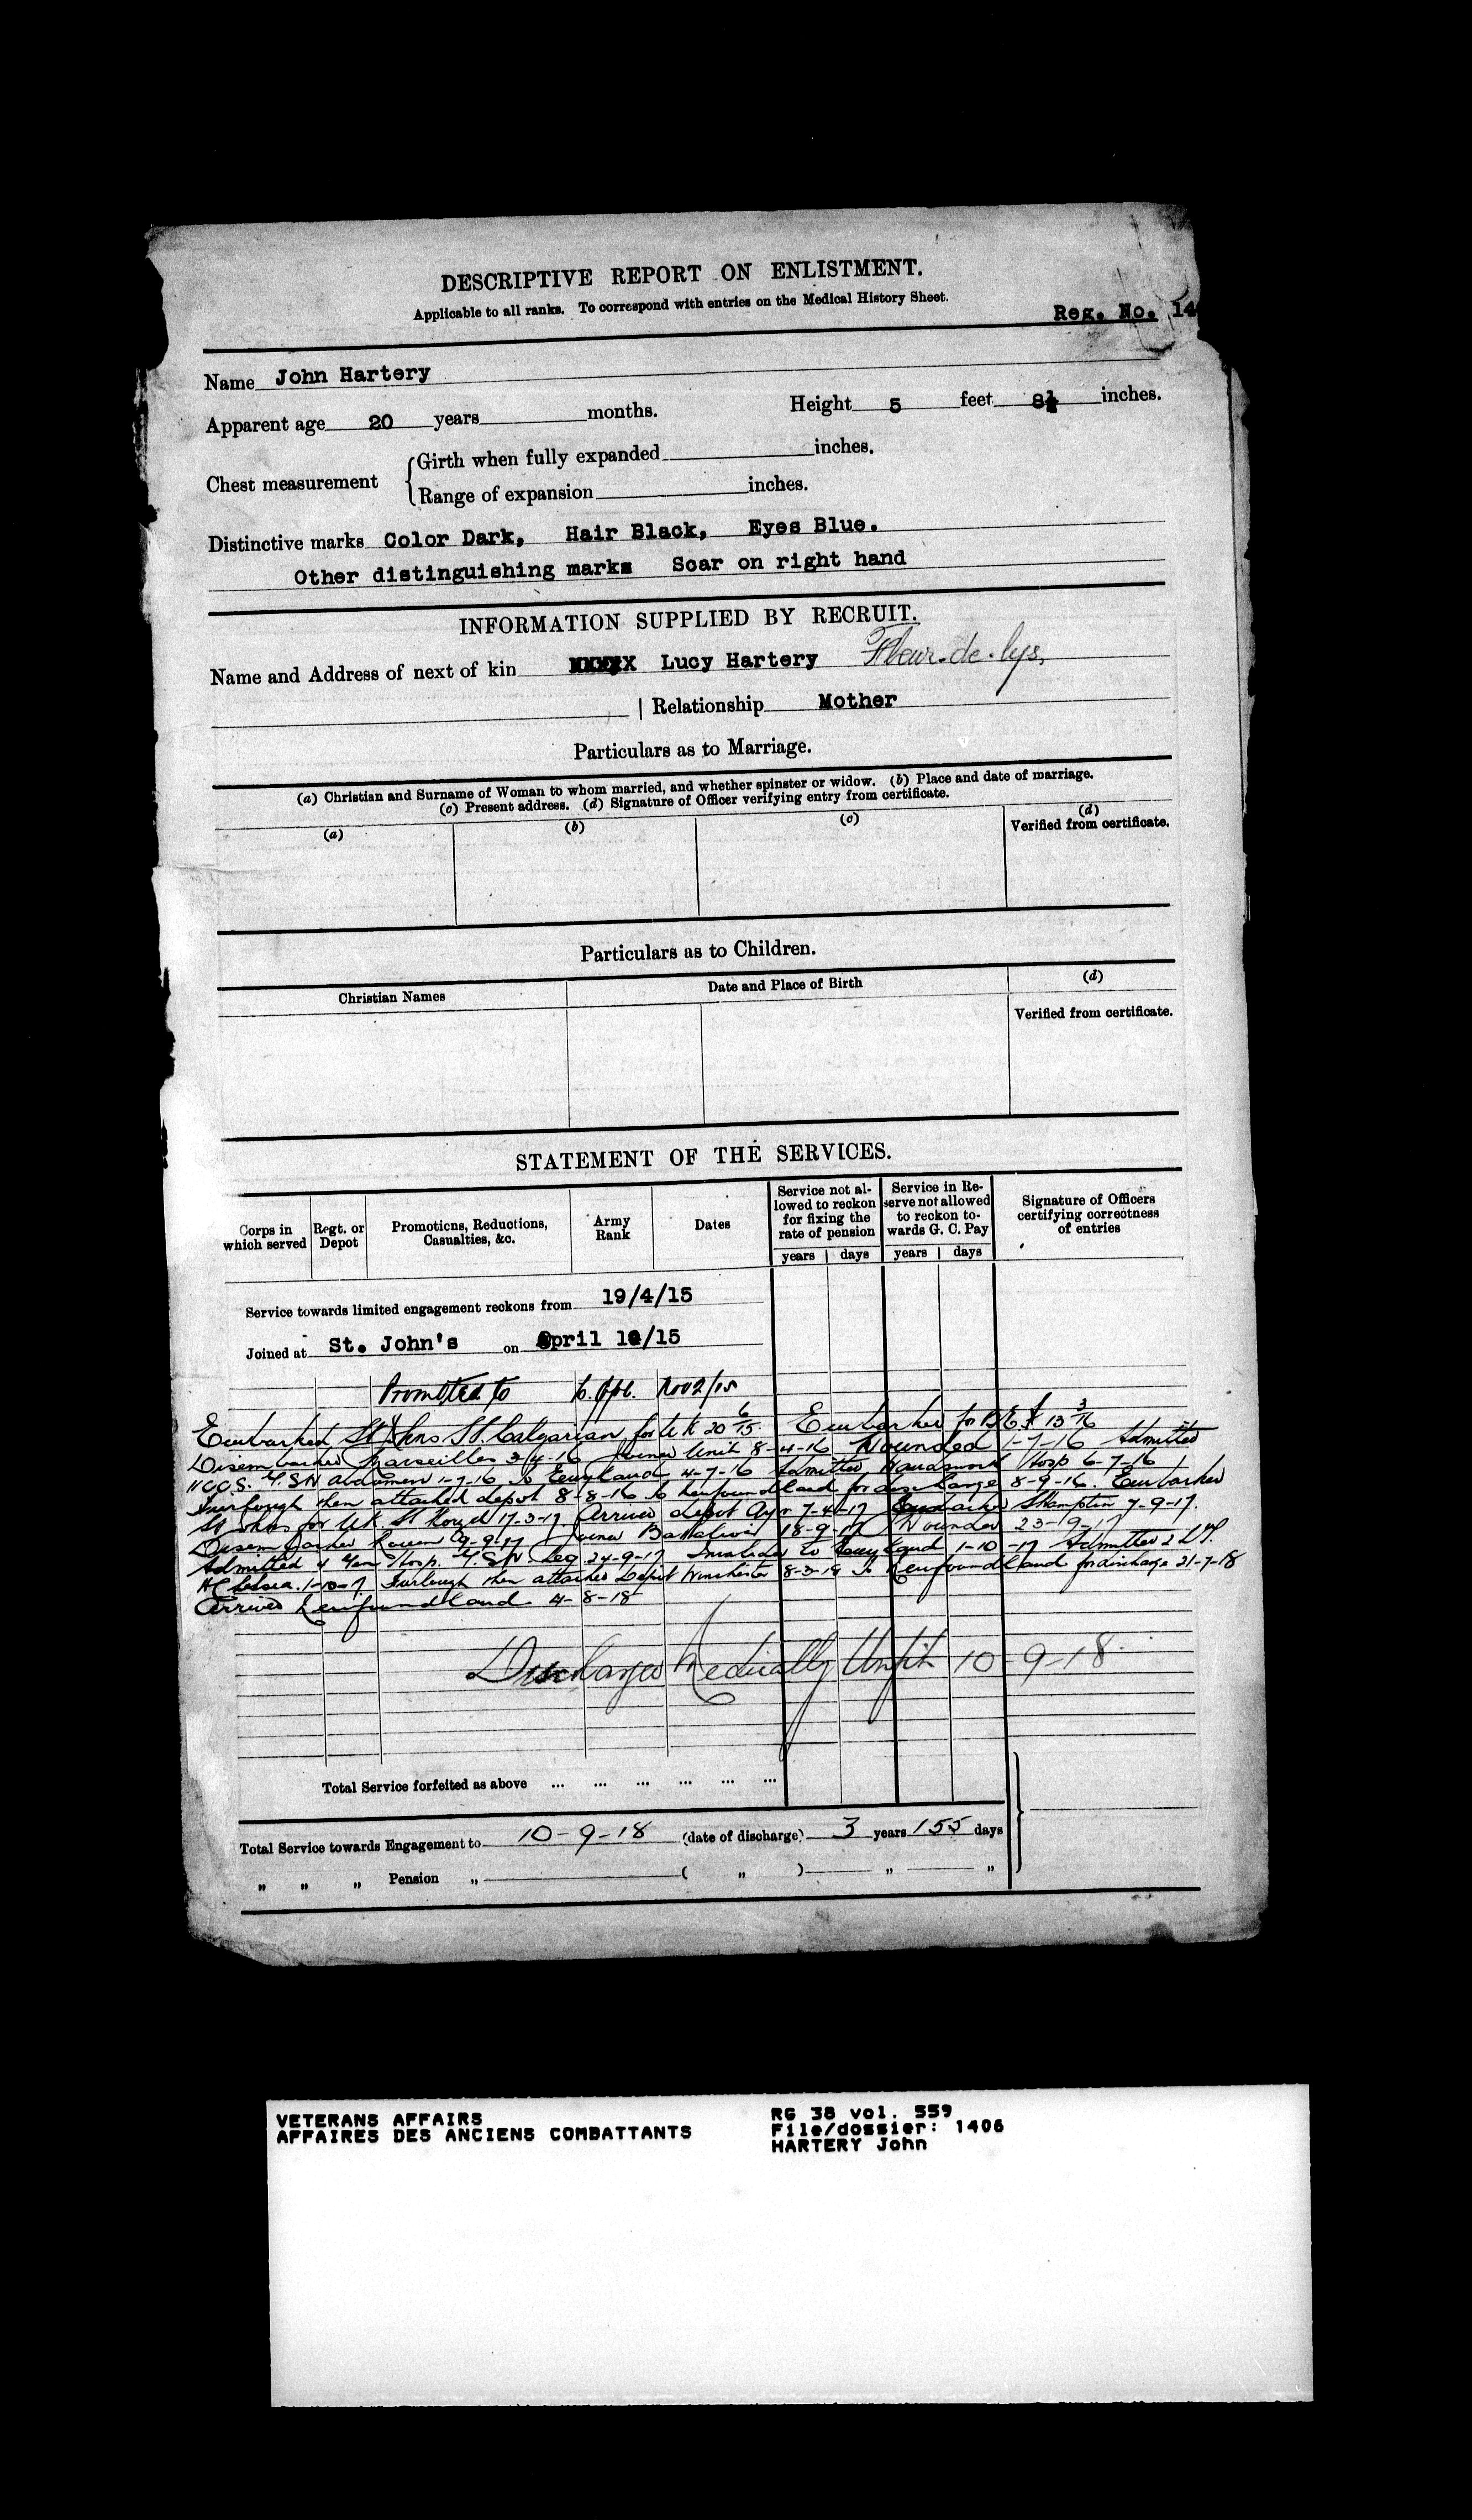 DESCRIPTIVE REPORT ON ENLISTMENT.
Applicable to all ranks. To correspond with entries on the Medical History Sheet.
Reg. No. 14
Name John Hartery
Apparent age 20 years months. Height 5 feet 8½ inches.
Chest measurement
Girth when fully expanded inches.
Range of expansion inches.
Distinctive marks Color Dark, Hair Black, Eyes Blue.
Other distinguishing marks Scar on right hand
INFORMATION SUPPLIED BY RECRUIT.
Name and Address of next of kin Lucy Hartery Fleur-de-lys.
| Relationship Mother
Particulars as to Marriage.
(a) Christian and Surname of Woman to whom married, and whether spinster or widow. (b) Place and date of marriage.
(c) Present address. (d) Signature of Officer verifying entry from certificate.
(a) (b) (c) (d)
Verified from certificate.
Particulars as to Children.
Christian Names Date and Place of Birth (d)
Verified from certificate.
STATEMENT OF THE SERVICES.
Corps in which served Regt. or Depot Promotions, Reductions, Casualties, &c. Army Rank Dates Service not allowed to reckon for fixing the rate of pension Service in Reserve not allowed to reckon towards G. C. Pay Signature of Officers certifying correctness of entries
years days years days
Service towards limited engagement reckons from 19/4/15
Joined at St. John's on April /15
Promoted to L. Cpl. Nov 2/15
Embarked St Johns SS Calgarian for UK 20 6/15 Embarked for B.E.F. 13 3/16
Disembarked Marseilles 3/4-16 Joined Unit 8-4-16 Wounded 1-7-16 Admitted
11 C.C.S. G.S.W abdomen 1-7-16 To England 4-7-16 Admitted Wandsworth Hosp 6-7-16
Furlough then attached depot 8-8-16 to Newfoundland for discharge 8-9-16. Embarked
St Johns for UK. 17-3-17. Arrived depot Ayr 7-4-17 Embarked Shampton 7-9-17.
Disembarked Rouen 9-9-17 Joined Battalion 18-9-17 Wounded 23-9-17
Admitted 4 Gen Hosp. G.S.W Leg 24-9-17 Invalided to England 1-10-17 Admitted 2 L
Chelsea. 1-10-17. Furlough then attached Depot Winchester 8-3-18 To Newfoundland for discharge 21-7-18
Arrived Newfoundland 4-8-18
Discharged Medically Unfit 10-9-18.
Total Service forfeited as above ... ... ... ... ... ...
Total Service towards Engagement to 10-9-18 (date of discharge) 3 years 155 days
„ „ „ Pension „ ( „ ) „ „
VETERANS AFFAIRS
AFFAIRES DES ANCIENS COMBATTANTS
RG 38 vol. 559
File/dossier: 1406
HARTERY John